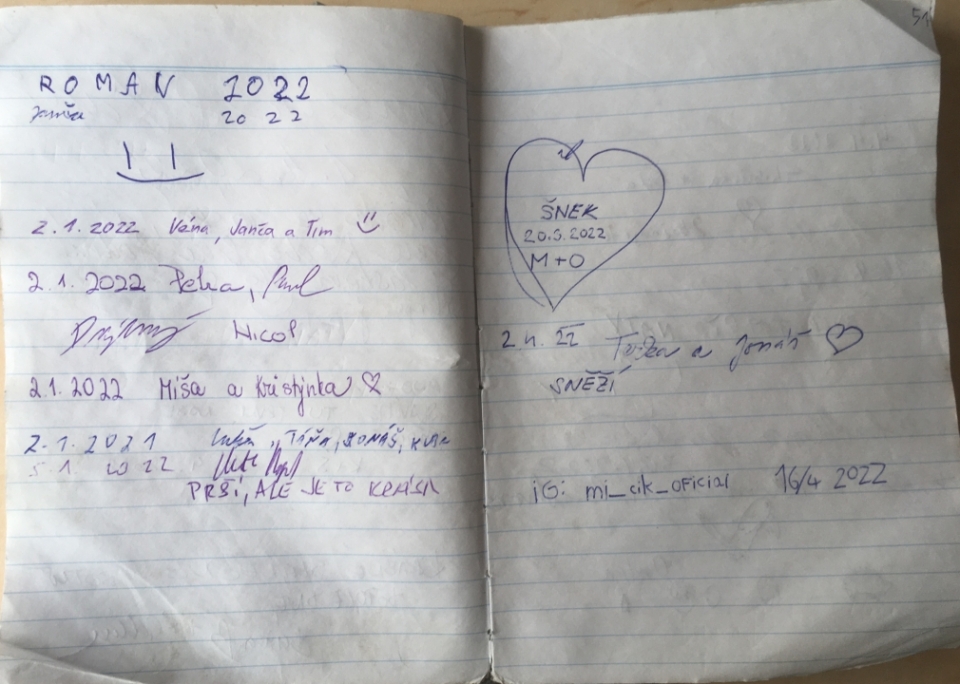 ROMAN 2022
Janča
20 22
2.1.2022 Véna, Janča a Tim
2.1.2022 Petra, Pavel
Nicol
2.1.2022 Míša a Kristýnka
2.1.2021 Táňa, JONÁŠ,
5.1 2022
PRŠÍ, ALE JE TO KRÁSA
51
ŠNEK
20.3.2022
M+O
2.4. 22 a Jonáš
SNĚŽÍ
iG: mi_cik_oficial 16/4 2022